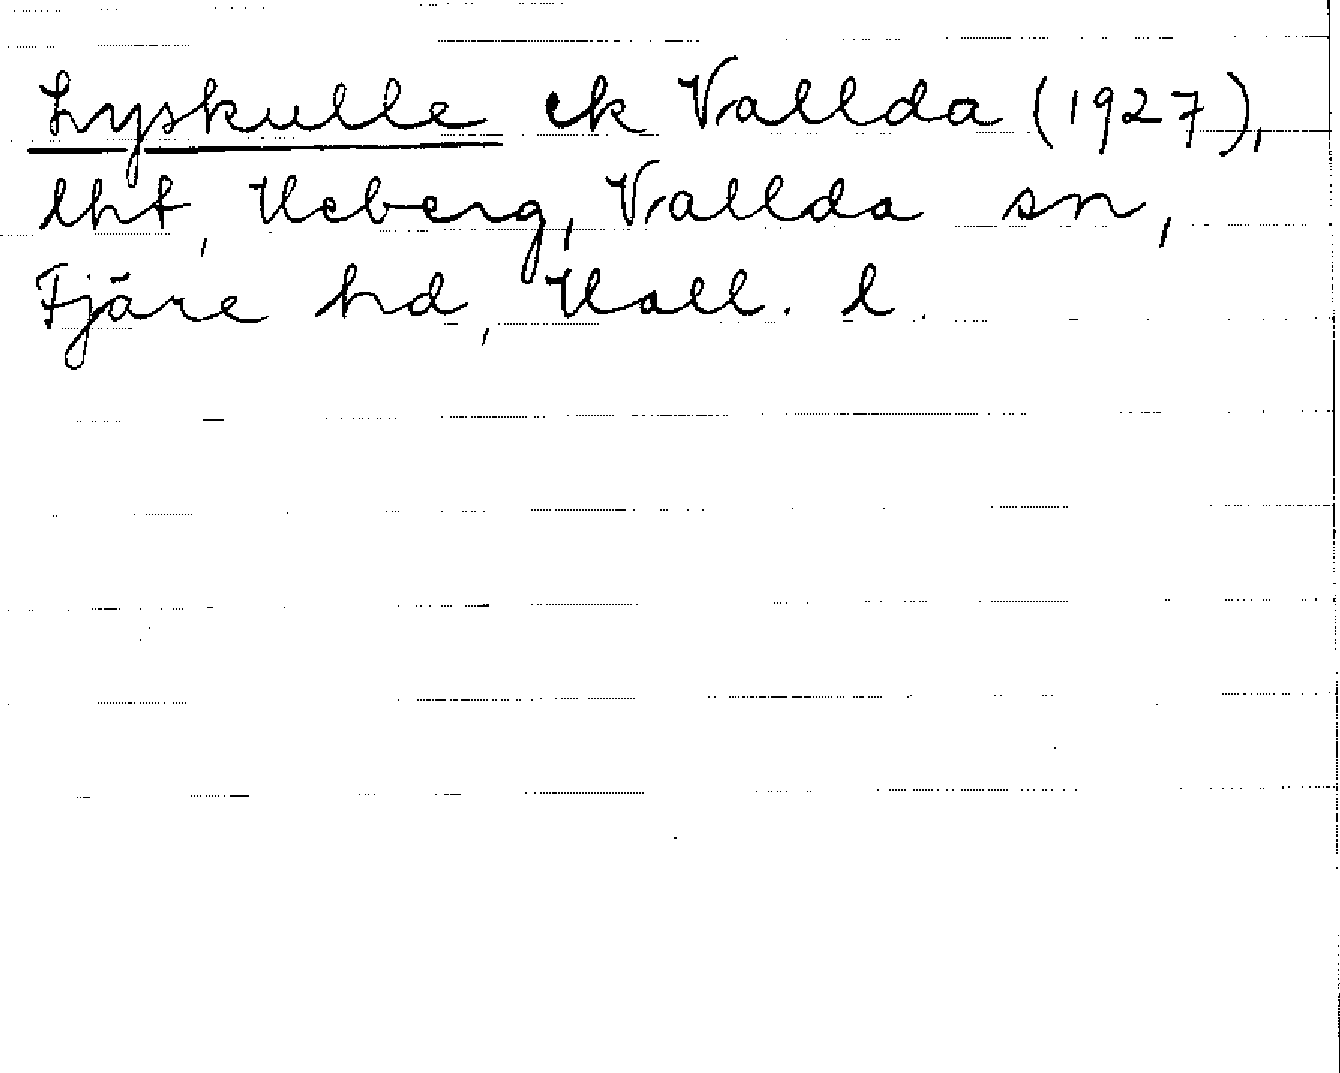 Lyskulle ek Vallda (1927),
lht, Heberg, Vallda sn,
Fjäre hd, Hall. l.